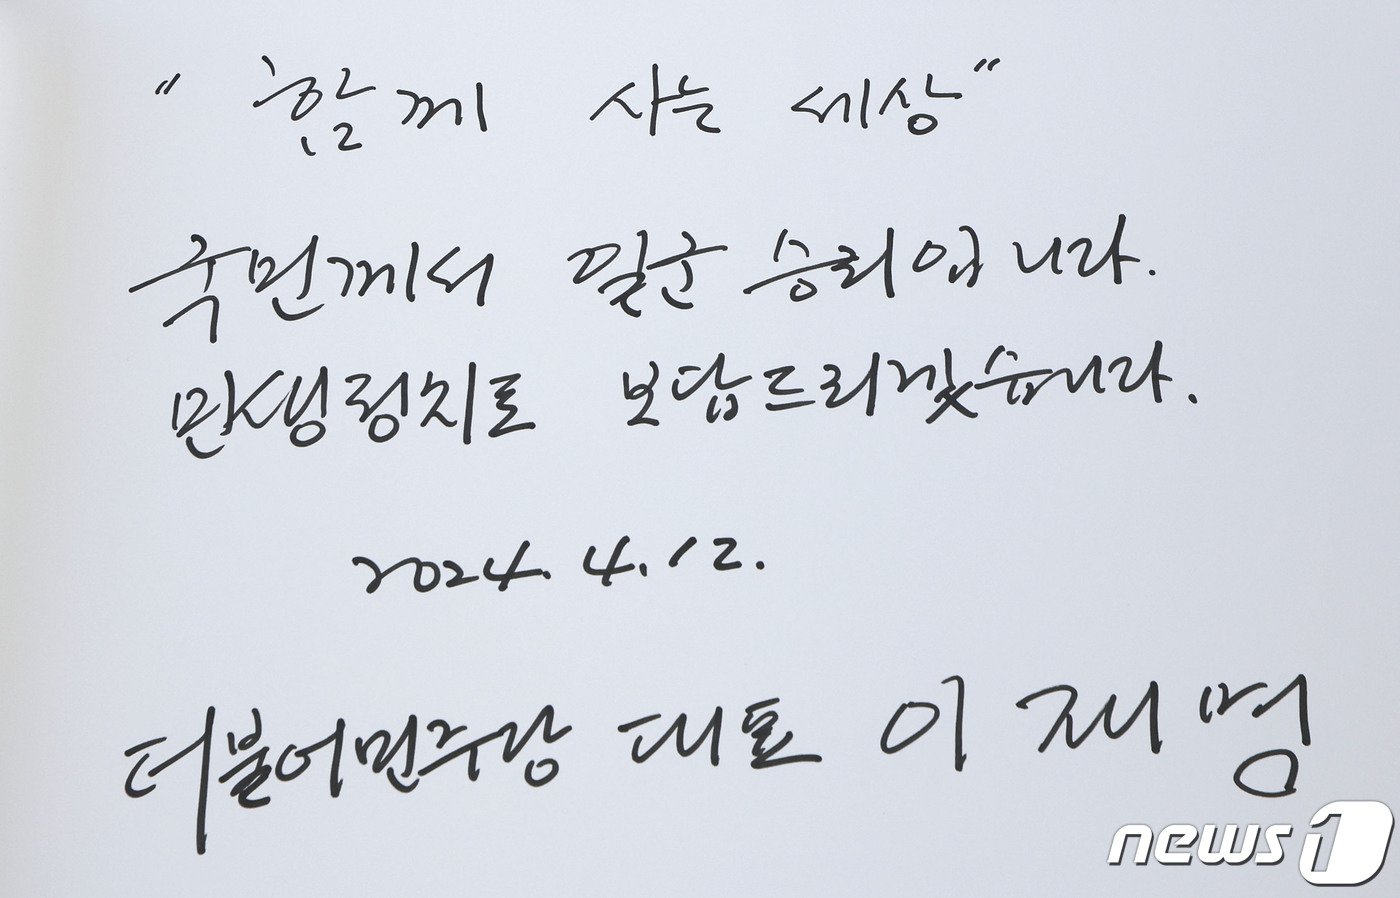 “함께 사는 세상”
국민께서 일군 승리입니다.
민생정치로 보답드리겠습니다.
2024. 4. 12.
더불어민주당 대표 이재명
news1